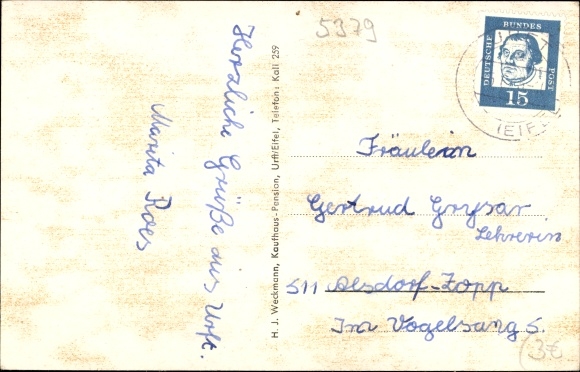 5379
DEUTSCHE
BUNDES
POST
15
Herzliche Grüße aus Urft.
Marita Roes
H. J. Weckmann, Kaufhaus-Pension, Urft/Eifel, Telefon: Kall 259
Fräulein
Gertrud Grysar
Lehrerin
511 Alsdorf-Zopp
Im Vogelsang 5.
(3€